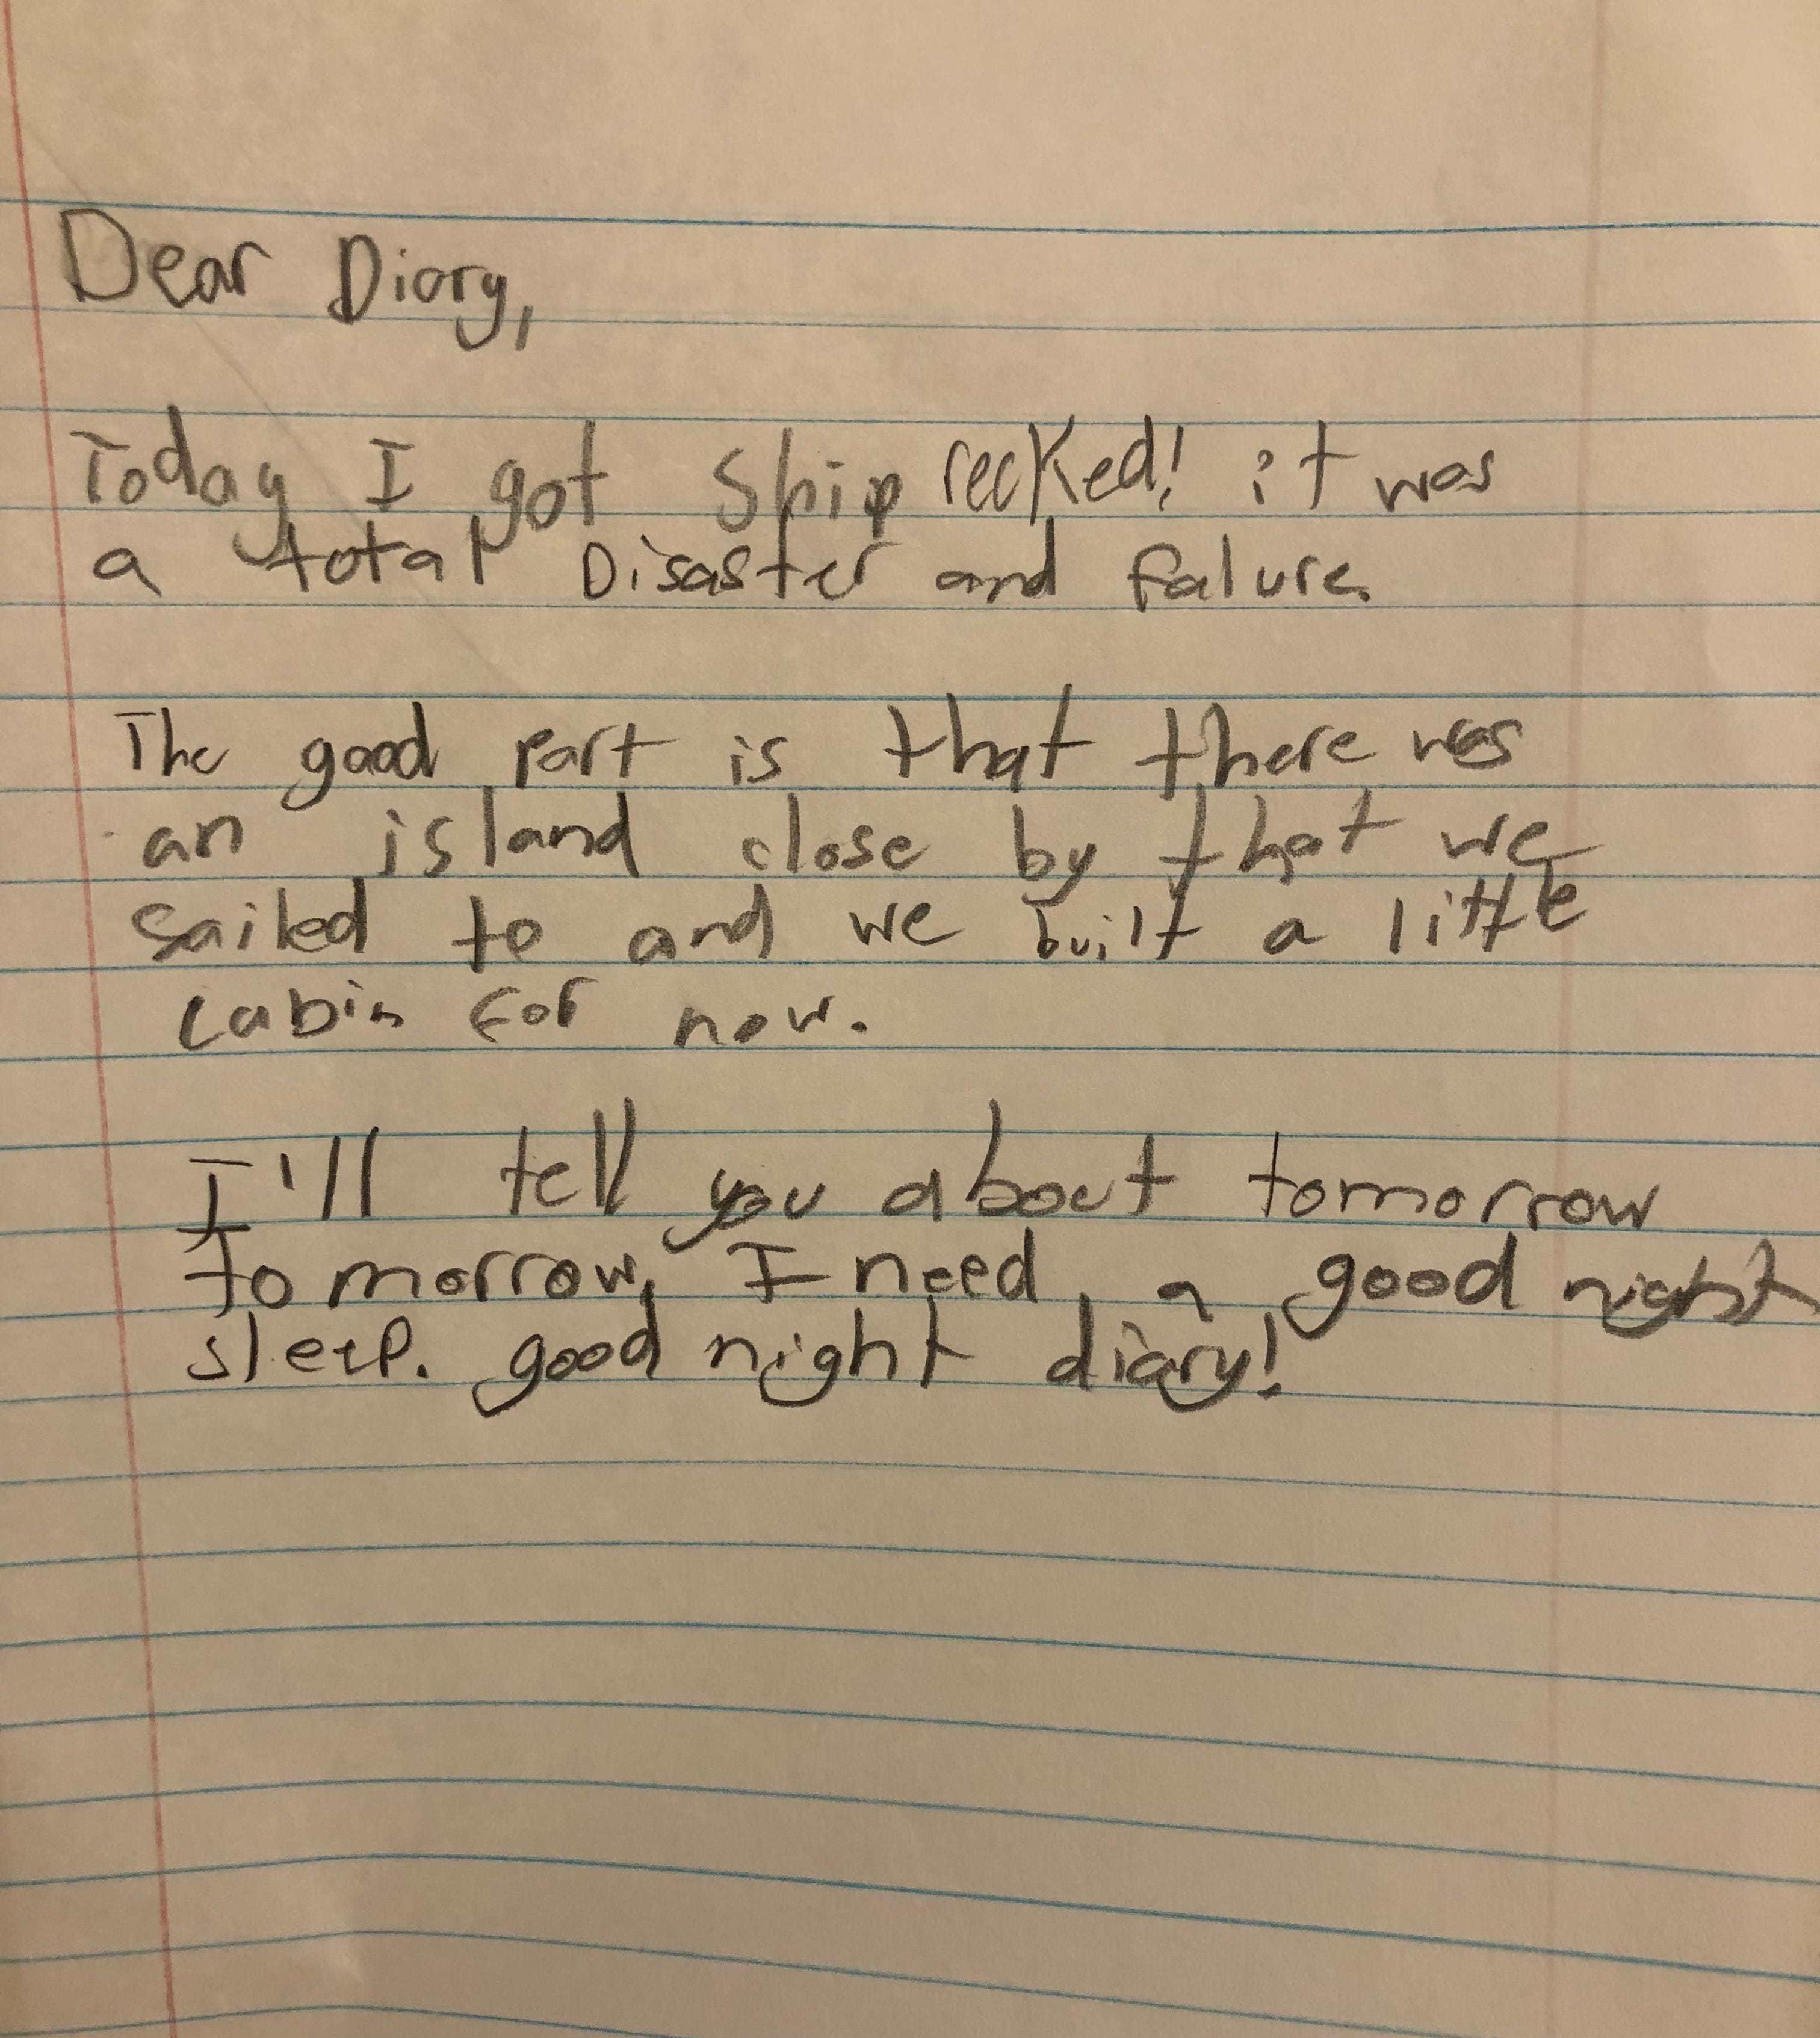 Dear Diary,
Today I got Ship recked! it was
a total Disaster and falure.
The good part is that there was
an island close by that we
sailed to and we built a little
cabin for now.
I'll tell you about tomorrow
tomorrow, I need a good night
sleep. good night diary!